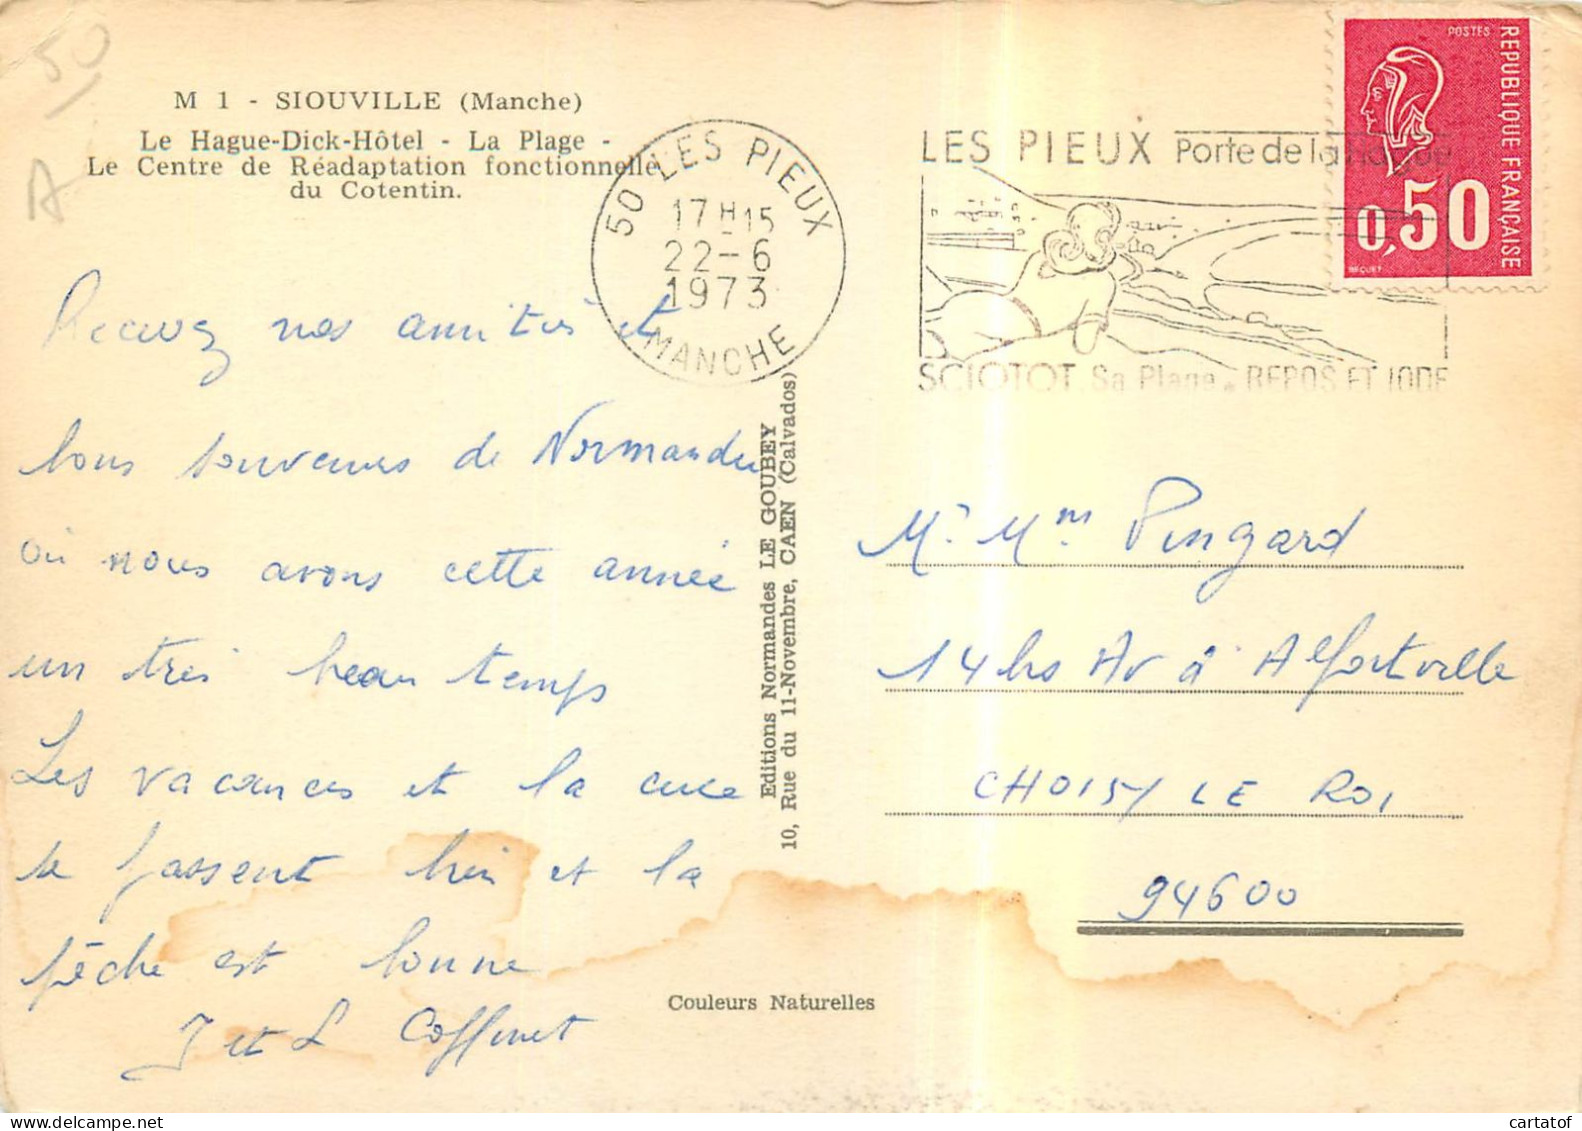 50
A
M 1 - SIOUVILLE (Manche)
Le Hague-Dick-Hôtel - La Plage -
Le Centre de Réadaptation fonctionnelle
du Cotentin.
50 LES PIEUX
17H15
22-6
1973
MANCHE
LES PIEUX Porte de la Hague
SCIOTOT Sa Plage. REPOS ET IODE
POSTES
REPUBLIQUE FRANÇAISE
0,50
BEQUET
Recevez nos amitiés et
bons souvenirs de Normandie
où nous avons cette année
un très beau temps
Les vacances et la cure
se passent bien et la
pêche est bonne
J et L Coffinet
Editions Normandes LE GOUBEY
10, Rue du 11-Novembre, CAEN (Calvados)
Mr Mm Pingard
14 bis Av d'Alfortville
CHOISY LE ROI
94600
Couleurs Naturelles
cartatof